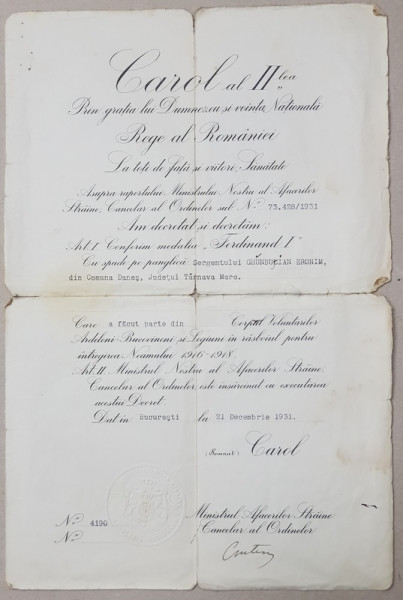 Carol al II lea
Prin grația lui Dumnezeu și voința Națională
Rege al României
La toți de față și viitori, Sănătate
Asupra raportului Ministrului Nostru al Afacerilor
Străine, Cancelar al Ordinelor sub No 73.428/1931
Am decretat și decretăm:
Art. I Conferim medalia „Ferdinand I"
Cu spade pe panglică Sergentului ERONIM,
din Comuna Daneș, Județul Târnava Mare.
Care a făcut parte din Corpul Voluntarilor
Ardeleni Bucovineni și Legiuni în războiul pentru
întregirea Neamului 1916-1918.
Art. II. Ministrul Nostru al Afacerilor Străine,
Cancelar al Ordinelor este însărcinat cu executarea
acestui Decret.
Dat în București la 21 Decembrie 1931.
(Semnat) Carol
Ministrul Afacerilor Străine
No 4190 Cancelar al Ordinelor
No